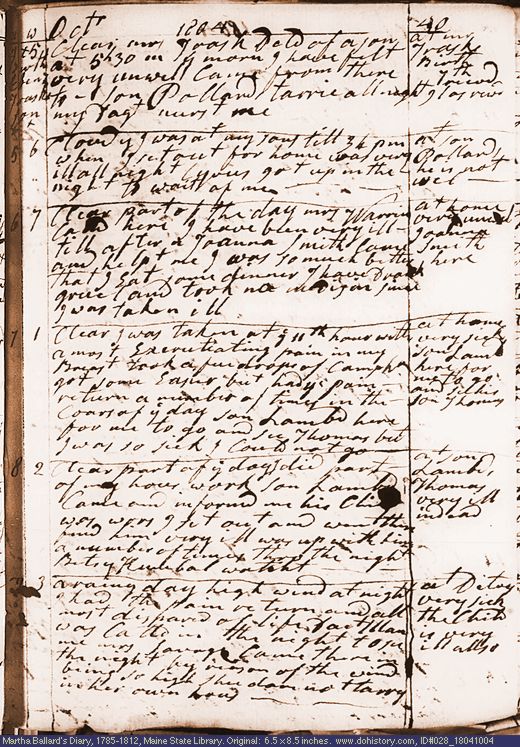 Oct 1804
Clear, mrs Trask Deld of a son
at 5h 30 m morn I have felt
very unwell Came from there
to son Pollard tarrie all night
my Dagt nurst me
at mr
Trasks
Birth
7th
5 6 Cloudy I was at my sons till 3h pm
when I set out for home was very
ill all night Cyrus got up in the
night to wait of me
at son
Pollards
he is not
well
6 7 Clear part of the day mrs Warrin
Calld here I have been very ill
till after Joanna Smith Came
and helpt me I was so much better
that I Eat some dinner I have Drank
gruel and took no medisin since
I was taken ill
at home
very unwel
Joanna
Smith
here
7 1 Clear I was taken at ye 11th hour with
a most Excrutiating pain in my
Brest took a few drops of Camphr
got some Easier but had ye pain
return a number of times in the
Coars of ye day son Lambd here
for me to go and see Thomas but
I was so sick I Could not go
at home
very sick
son Lamb
here for
me to go
and see his
son Thomas
8 2 Clear part of ye day I did part
of my hous work son Lambd
Came and informd me his Child
was wors I set out and went
find him very ill was up with him
a number of times thro the night
Betsy Kimbal watcht
at son
Lambds
Thomas
very ill
indead
3 a rainy day high wind at night
I had the pain return and all
most dispard of life Dact Man
was Calld in the night to see
me mrs Savage Came there in
the night by reason of the wind
being so high shee dare not tarry
in her own hous
at Ditoes
very sick
the Child
is very
ill allso
Martha Ballard's Diary, 1785-1812, Maine State Library. Original: 6.5 x 8.5 inches. www.dohistory.com, ID#028_18041004